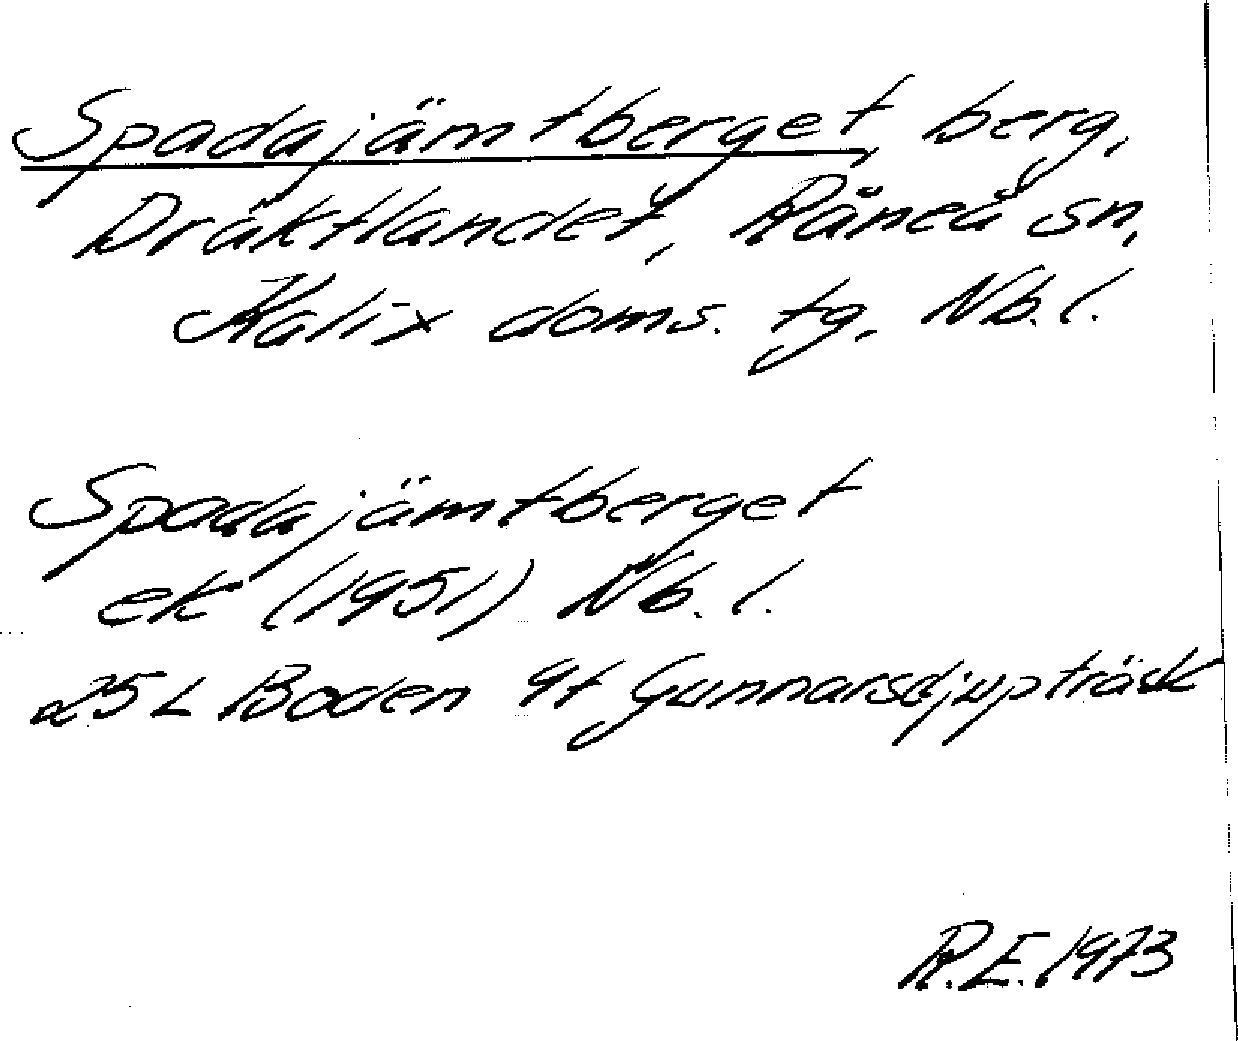 Spadajämtberget, berg,
Dräktlandet, Råneå sn,
Kalix doms. tg, Nb. l.
Spadajämtberget
ek (1951) Nb. l.
25 L Boden 9f Gunnarsdjupträsk
R.E. 1973